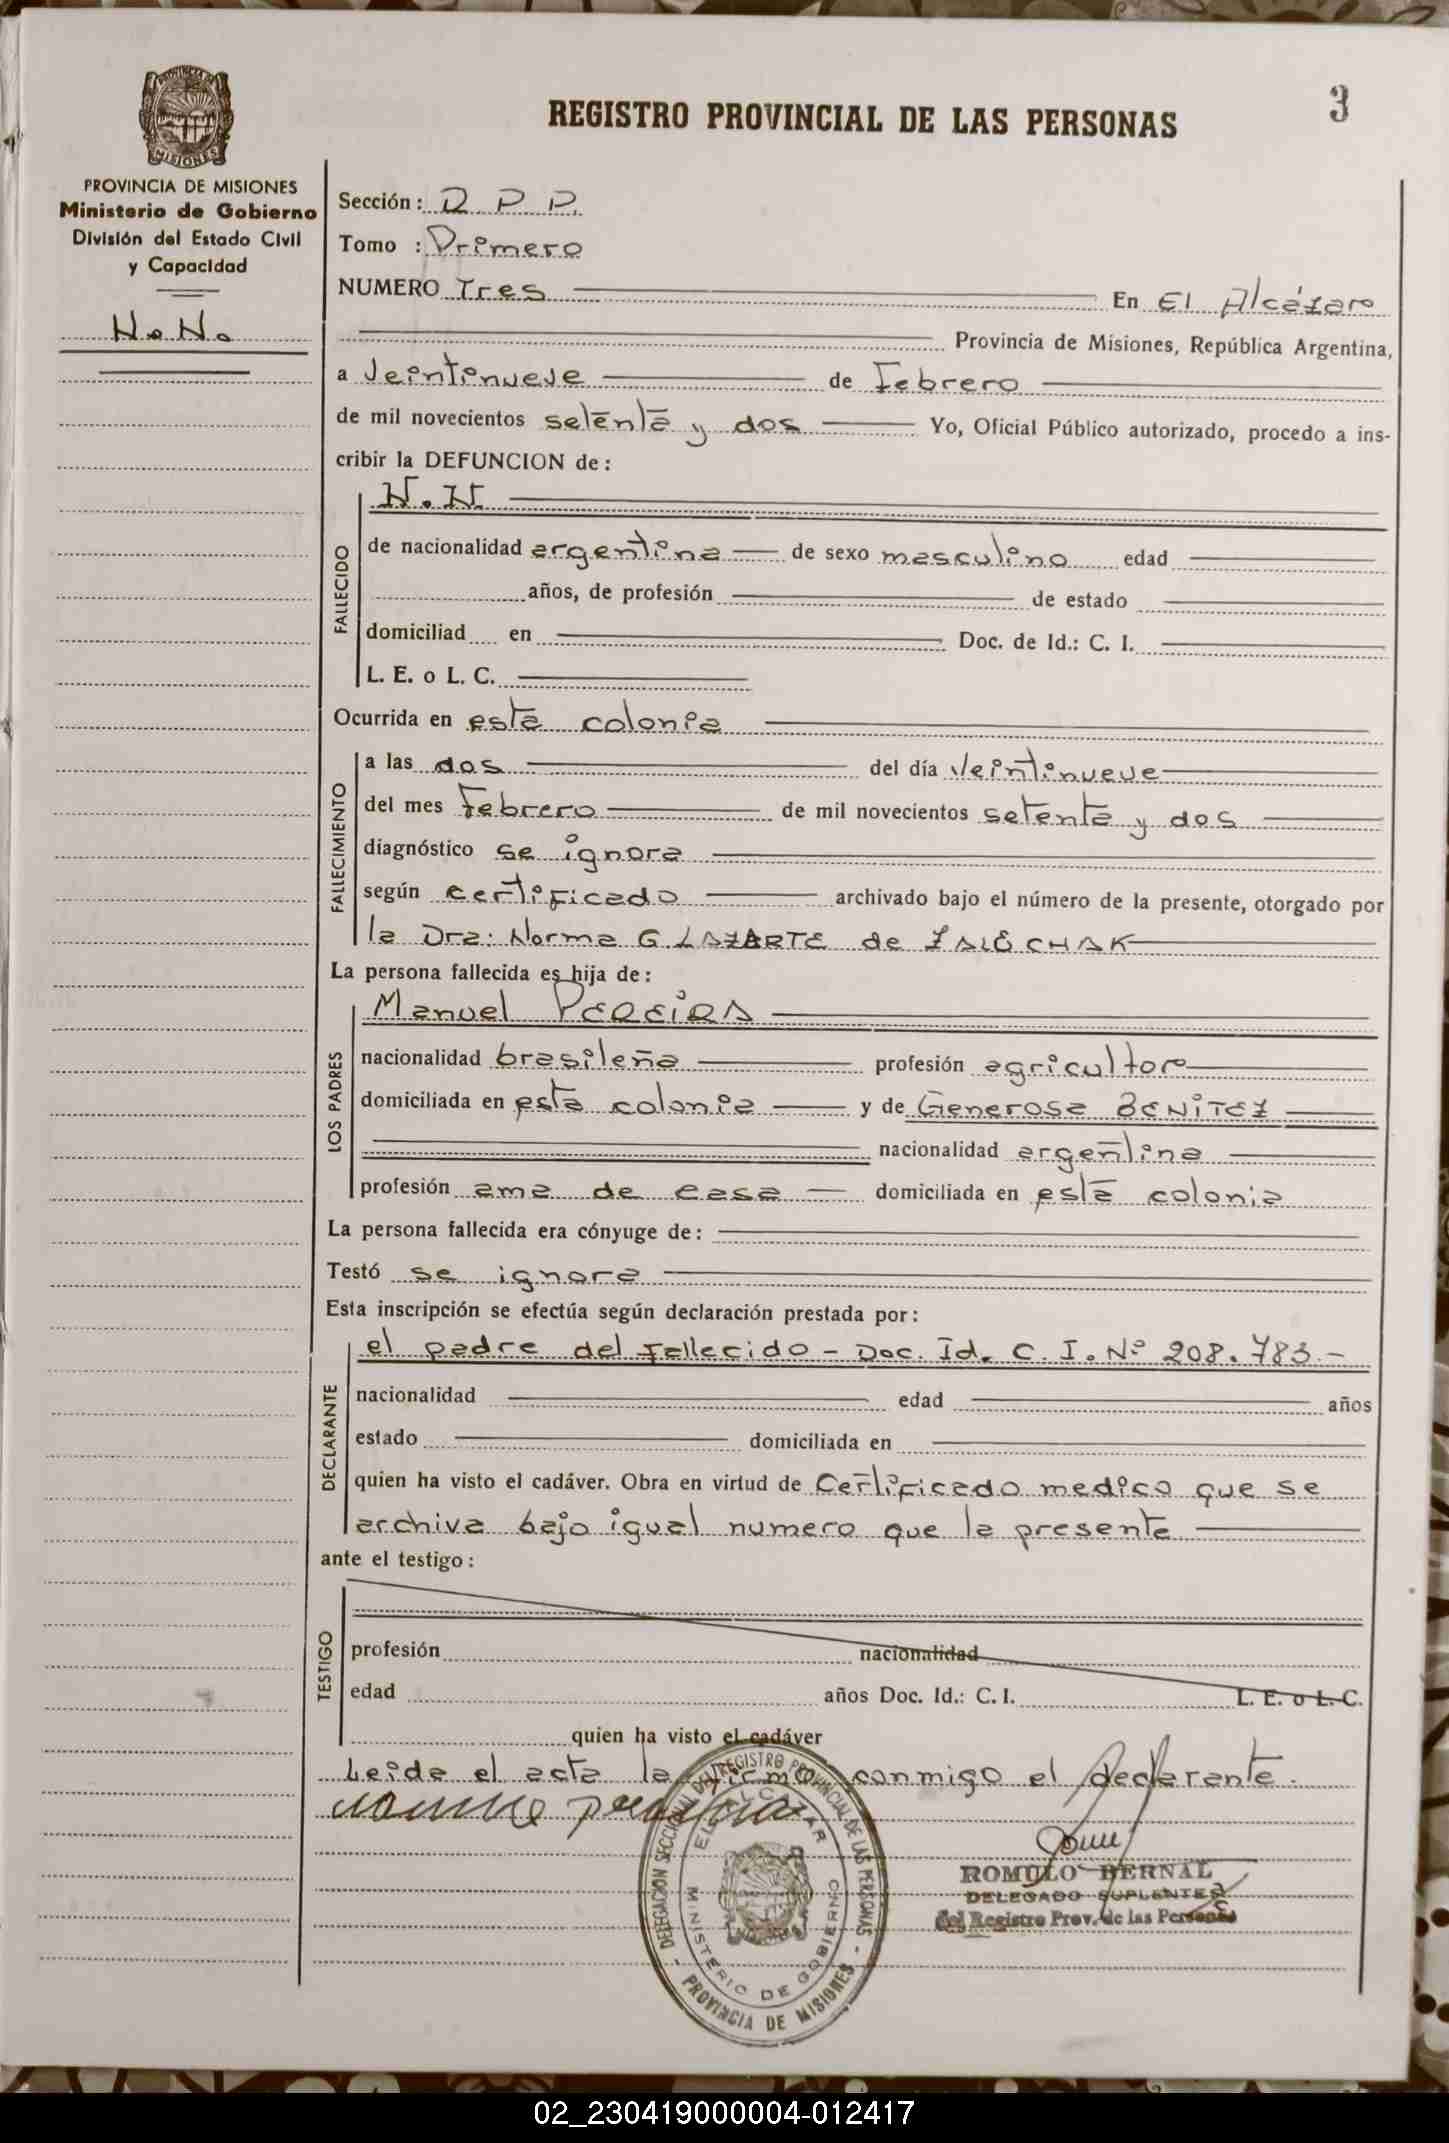 REGISTRO PROVINCIAL DE LAS PERSONAS
3
PROVINCIA DE MISIONES
PROVINCIA DE MISIONES
Ministerio de Gobierno
División del Estado Civil
y Capacidad
N.N.
Sección: D P P.
Tomo : Primero
NUMERO Tres En El Alcázar
Provincia de Misiones, República Argentina,
a Veintinueve de Febrero
de mil novecientos setenta y dos Yo, Oficial Público autorizado, procedo a ins-
cribir la DEFUNCION de:
N.N
FALLECIDO
de nacionalidad argentina de sexo masculino edad
años, de profesión de estado
domiciliad en Doc. de Id.: C. I.
L. E. o L. C.
Ocurrida en esta colonia
FALLECIMIENTO
a las dos del día Veintinueve
del mes Febrero de mil novecientos setenta y dos
diagnóstico se ignora
según certificado archivado bajo el número de la presente, otorgado por
la Dra. Norma G LAZARTE de
La persona fallecida es hija de:
LOS PADRES
Manuel PEREIRA
nacionalidad brasileña profesión agricultor
domiciliada en esta colonia y de Generosa BENITEZ
nacionalidad argentina
profesión ama de casa domiciliada en esta colonia
La persona fallecida era cónyuge de:
Testó se ignora
Esta inscripción se efectúa según declaración prestada por:
DECLARANTE
el padre del fallecido - Doc. Id. C. I. Nº 208.783.-
nacionalidad edad años
estado domiciliada en
quien ha visto el cadáver. Obra en virtud de Certificado medico que se
archiva bajo igual numero que la presente
ante el testigo:
TESTIGO
profesión nacionalidad
edad años Doc. Id.: C. I. L. E. o L. C.
quien ha visto el cadáver
Leida el acta la firma conmigo el declarante.
DELEGACION SECCIONAL DEL REGISTRO PROVINCIAL DE LAS PERSONAS
EL ALCAZAR
MINISTERIO DE GOBIERNO
- PROVINCIA DE MISIONES -
ROMULO BERNAL
DELEGADO SUPLENTE
del Registro Prov. de las Personas
02_230419000004-012417